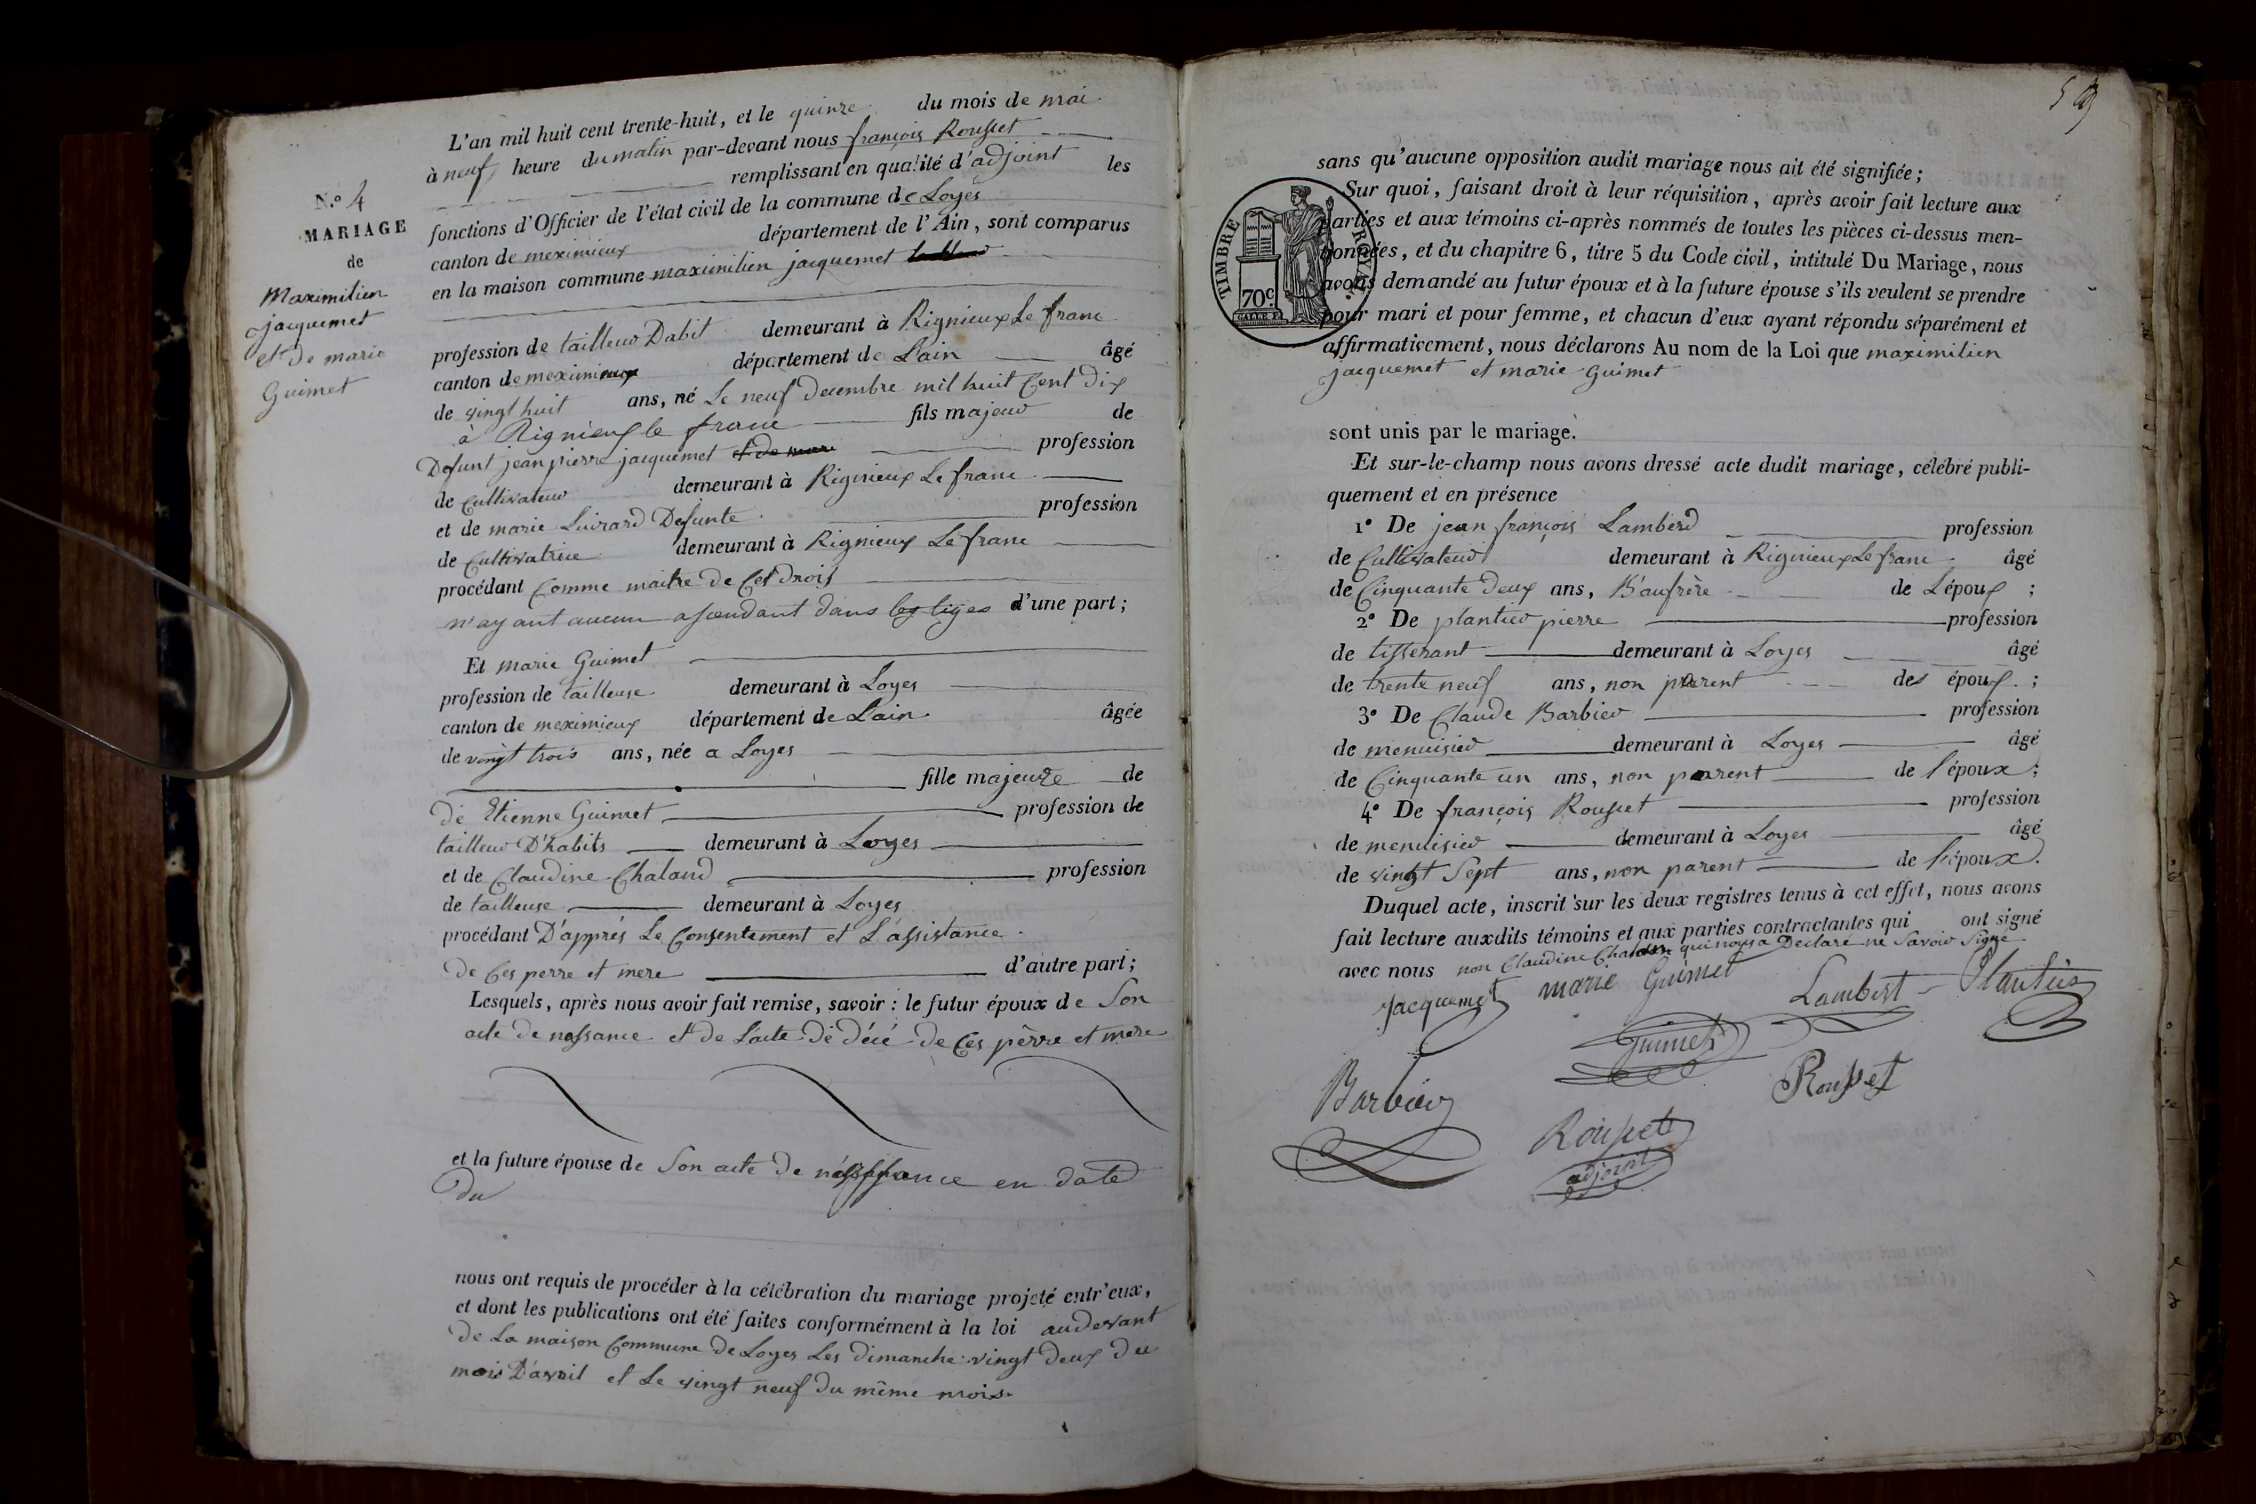 N.o 4
MARIAGE
de
Maximilien
jacquemet
et de marie
Guimet
L'an mil huit cent trente-huit, et le quinze du mois de mai
à neuf heure du matin par-devant nous françois Rousset
remplissant en qualité d'adjoint les
fonctions d'Officier de l'état civil de la commune de Loyes
canton de meximieux département de l'Ain, sont comparus
en la maison commune maximilien jacquemet
profession de tailleur Dabit demeurant à Rignieux Le franc
canton de meximieux département de L'ain âgé
de vingt huit ans, né Le neuf Decembre mil huit Cent Dix
à Rignieux le franc fils majeur de
Defunt jean pierre jacquemet et de marie profession
de Cultivateur demeurant à Rignieux Le franc
et de marie Luirard Defunte profession
de Cultivatrice demeurant à Rignieux Le franc
procédant Comme maitre de Ces Droits
n'ayant aucun assendant dans les liges d'une part;
Et marie Guimet
profession de tailleuse demeurant à Loyes
canton de meximieux département de L'ain âgée
de vingt trois ans, née a Loyes
fille majeure de
de Etienne Guimet profession de
tailleur D'habits demeurant à Loyes
et de Claudine Chaland profession
de tailleuse demeurant à Loyes
procédant D'apprés Le Consentement et L'assistance
de Ces perre et mere d'autre part;
Lesquels, après nous avoir fait remise, savoir: le futur époux de Son
acte de nassance et de L'acte De décé de Ces pèrre et mere
et la future épouse de Son acte de naissance en date
Du
nous ont requis de procéder à la célébration du mariage projeté entr'eux,
et dont les publications ont été faites conformément à la loi audevant
de La maison Commune de Loyes Les dimanche vingt Deux Du
mois D'avril et Le vingt neuf du même mois
59
TIMBRE ROYAL
70c.
sans qu'aucune opposition audit mariage nous ait été signifiée;
Sur quoi, faisant droit à leur réquisition, après avoir fait lecture aux
parties et aux témoins ci-après nommés de toutes les pièces ci-dessus men-
tionnées, et du chapitre 6, titre 5 du Code civil, intitulé Du Mariage, nous
avons demandé au futur époux et à la future épouse s'ils veulent se prendre
pour mari et pour femme, et chacun d'eux ayant répondu séparément et
affirmativement, nous déclarons Au nom de la Loi que maximilien
jacquemet et marie Guimet
sont unis par le mariage.
Et sur-le-champ nous avons dressé acte dudit mariage, célébré publi-
quement et en présence
1o De jean françois Lamberd profession
de Cultivateur demeurant à Rignieux Le franc âgé
de Cinquante Deux ans, B'aufrère de L'époux ;
2o De plantier pierre profession
de tisserant demeurant à Loyes âgé
de trente neuf ans, non parent des époux ;
3o De Claude Barbier profession
de menuisier demeurant à Loyes âgé
de Cinquante un ans, non parent de l'époux ;
4o De françois Rousset profession
de menuisier demeurant à Loyes âgé
de vingt Sept ans, non parent de l'époux.
Duquel acte, inscrit sur les deux registres tenus à cet effet, nous avons
fait lecture auxdits témoins et aux parties contractantes qui ont signé
avec nous non Claudine Chaland qui nous a Declaré ne Savoir Signe
Jacquemet marie Guimet Lambert Plantier
Guimet
Barbier Rousset
Rousset
adjoint